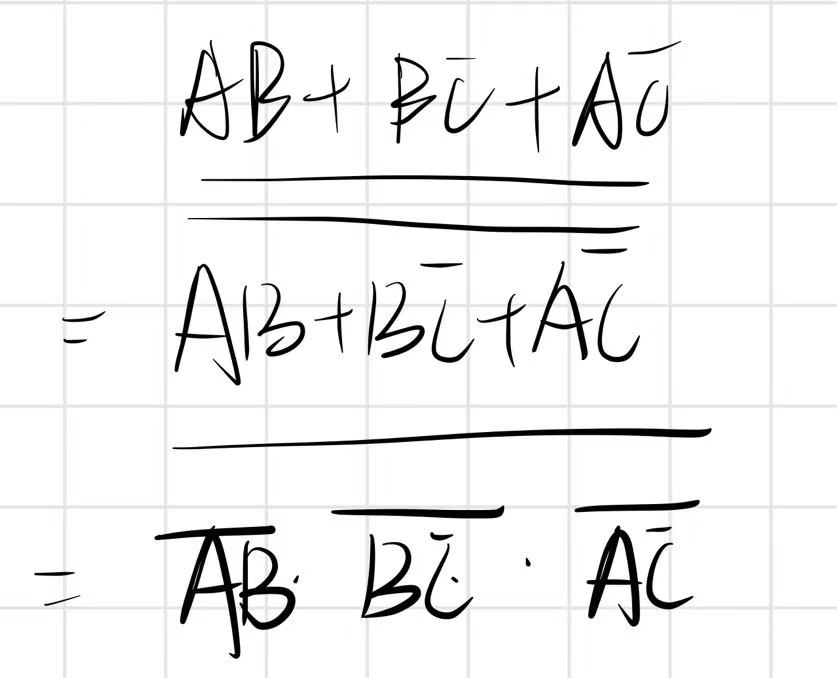 AB + BC̅ + AC̅
= \overline{\overline{AB + B\overline{C} + A\overline{C}}}
= \overline{\overline{AB} · \overline{B\overline{C}} · \overline{A\overline{C}}}